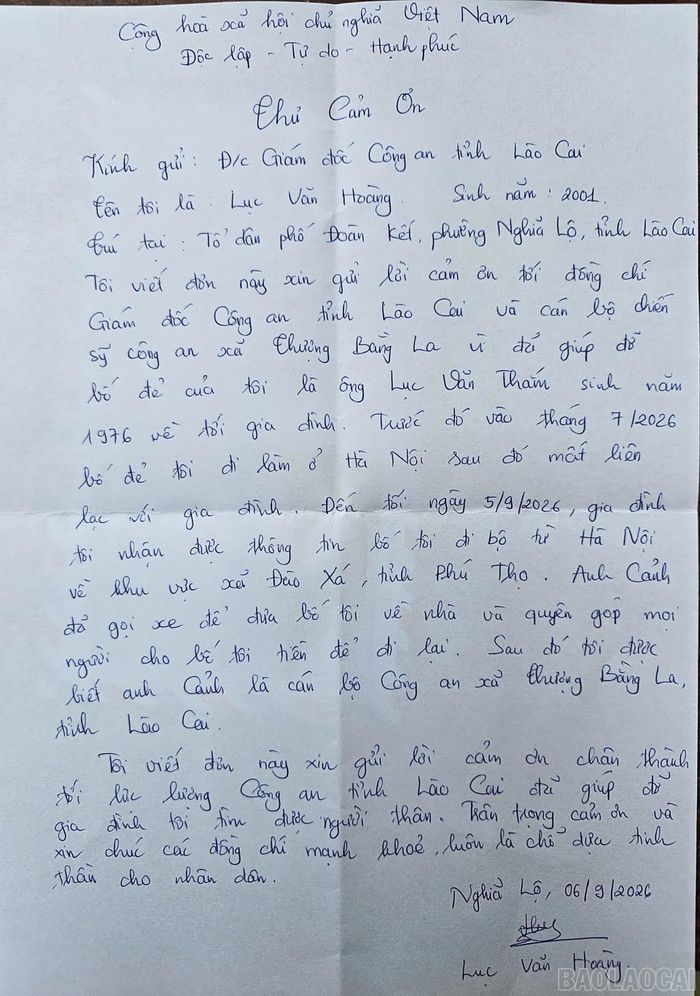 Cộng hoà xã hội chủ nghĩa Việt Nam
Độc lập - Tự do - Hạnh phúc
Thư Cảm Ơn
Kính gửi : Đ/c Giám đốc Công an tỉnh Lào Cai
Tên tôi là : Lục Văn Hoàng. Sinh năm : 2001.
Trú tại : Tổ dân phố Đoàn Kết, phường Nghĩa Lộ, tỉnh Lào Cai
Tôi viết đơn này xin gửi lời cảm ơn tới đồng chí
Giám đốc Công an tỉnh Lào Cai và cán bộ chiến
sỹ công an xã Thượng Bằng La vì đã giúp đỡ
bố đẻ của tôi là ông Lục Văn Thắm sinh năm
1976 về tới gia đình. Trước đó vào tháng 7/2026
bố đẻ tôi đi làm ở Hà Nội sau đó mất liên
lạc với gia đình. Đến tối ngày 5/9/2026, gia đình
tôi nhận được thông tin bố tôi đi bộ từ Hà Nội
về khu vực xã Đào Xá, tỉnh Phú Thọ. Anh Cảnh
đã gọi xe để đưa bố tôi về nhà và quyên góp mọi
người cho bố tôi tiền để đi lại. Sau đó tôi được
biết anh Cảnh là cán bộ Công an xã Thượng Bằng La,
tỉnh Lào Cai.
Tôi viết đơn này xin gửi lời cảm ơn chân thành
tới lực lượng Công an tỉnh Lào Cai đã giúp đỡ
gia đình tôi tìm được người thân. Trân trọng cảm ơn và
xin chúc các đồng chí mạnh khoẻ, luôn là chỗ dựa tinh
thần cho nhân dân.
Nghĩa Lộ, 06/9/2026
Lục Văn Hoàng.
BAOLAOCAI